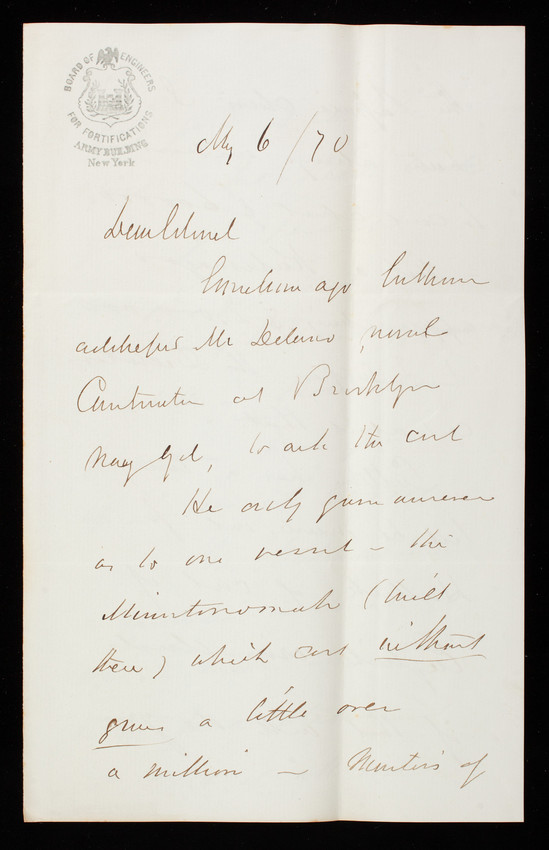 BOARD OF ENGINEERS
FOR FORTIFICATIONS
ARMY BUILDING
New York
My 6/70
Dear Colonel
Sometime ago
Mr Delano, naval
Constructor at Brooklyn
Navy Yd, to ask the cost
He only gives answer
as to one vessel – the
Miantonomah (built
there) which cost without
guns a little over
a million – Monitors of